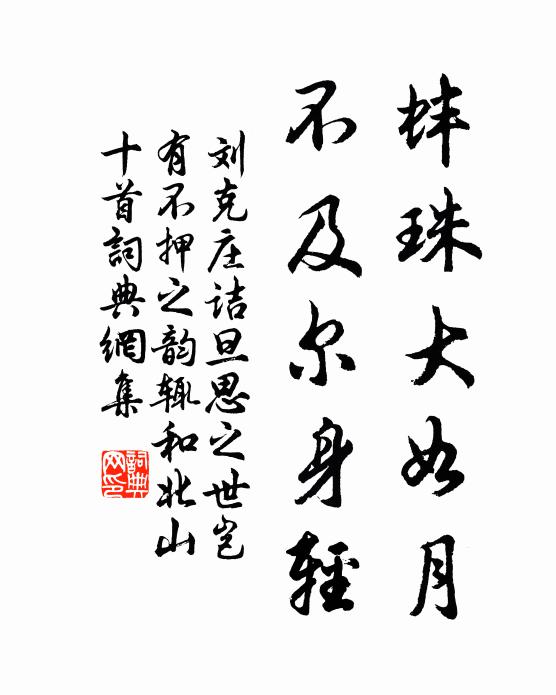 蚌珠大如月
不及尔身轻
刘克庄诘旦思之世岂
有不押之韵辄和北山
十首詞典網集
詞典
网印